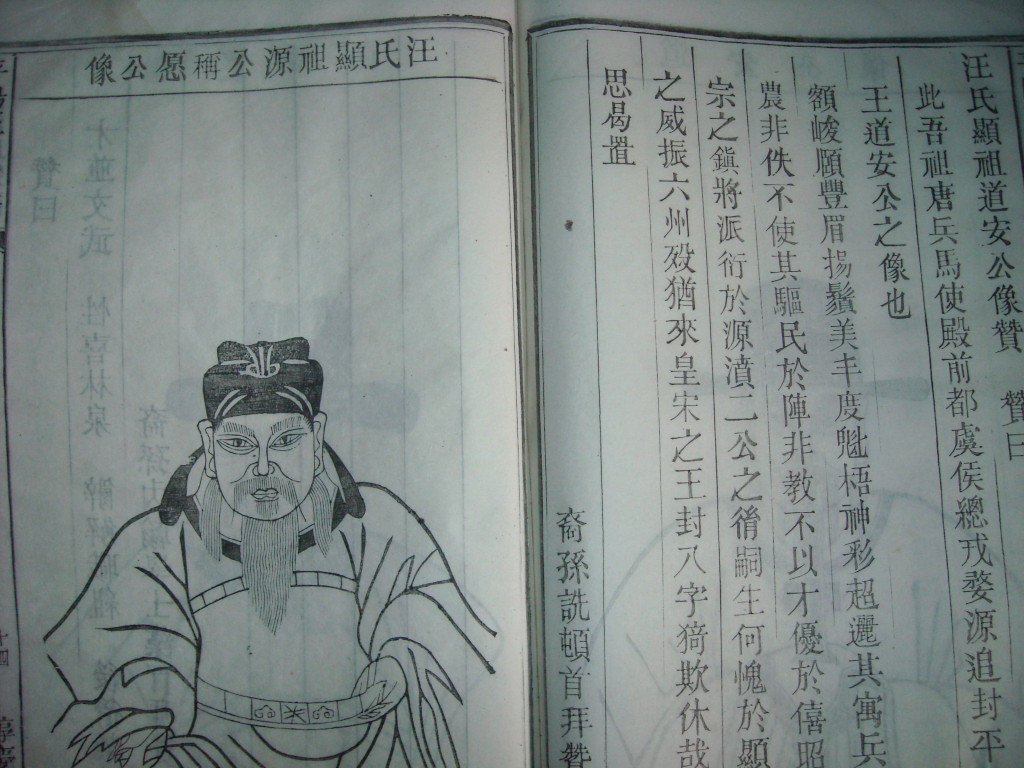 汪氏顯祖道安公像贊 贊曰
此吾祖唐兵馬使殿前都虞侯總戎婺源追封平
王道安公之像也
額峻頤豐眉揚鬚美丰度魁梧神彩超邁其寓兵
農非佚不使其驅民於陣非教不以才優於僖昭
宗之鎮將派衍於源濆二公之後嗣生何愧於顯
之威振六州歿猶來皇宋之王封八字猗欤休哉
思曷置
裔孫詵頓首拜贊
汪氏顯祖源公稱愿公像
贊曰
才並文武 性喜林泉